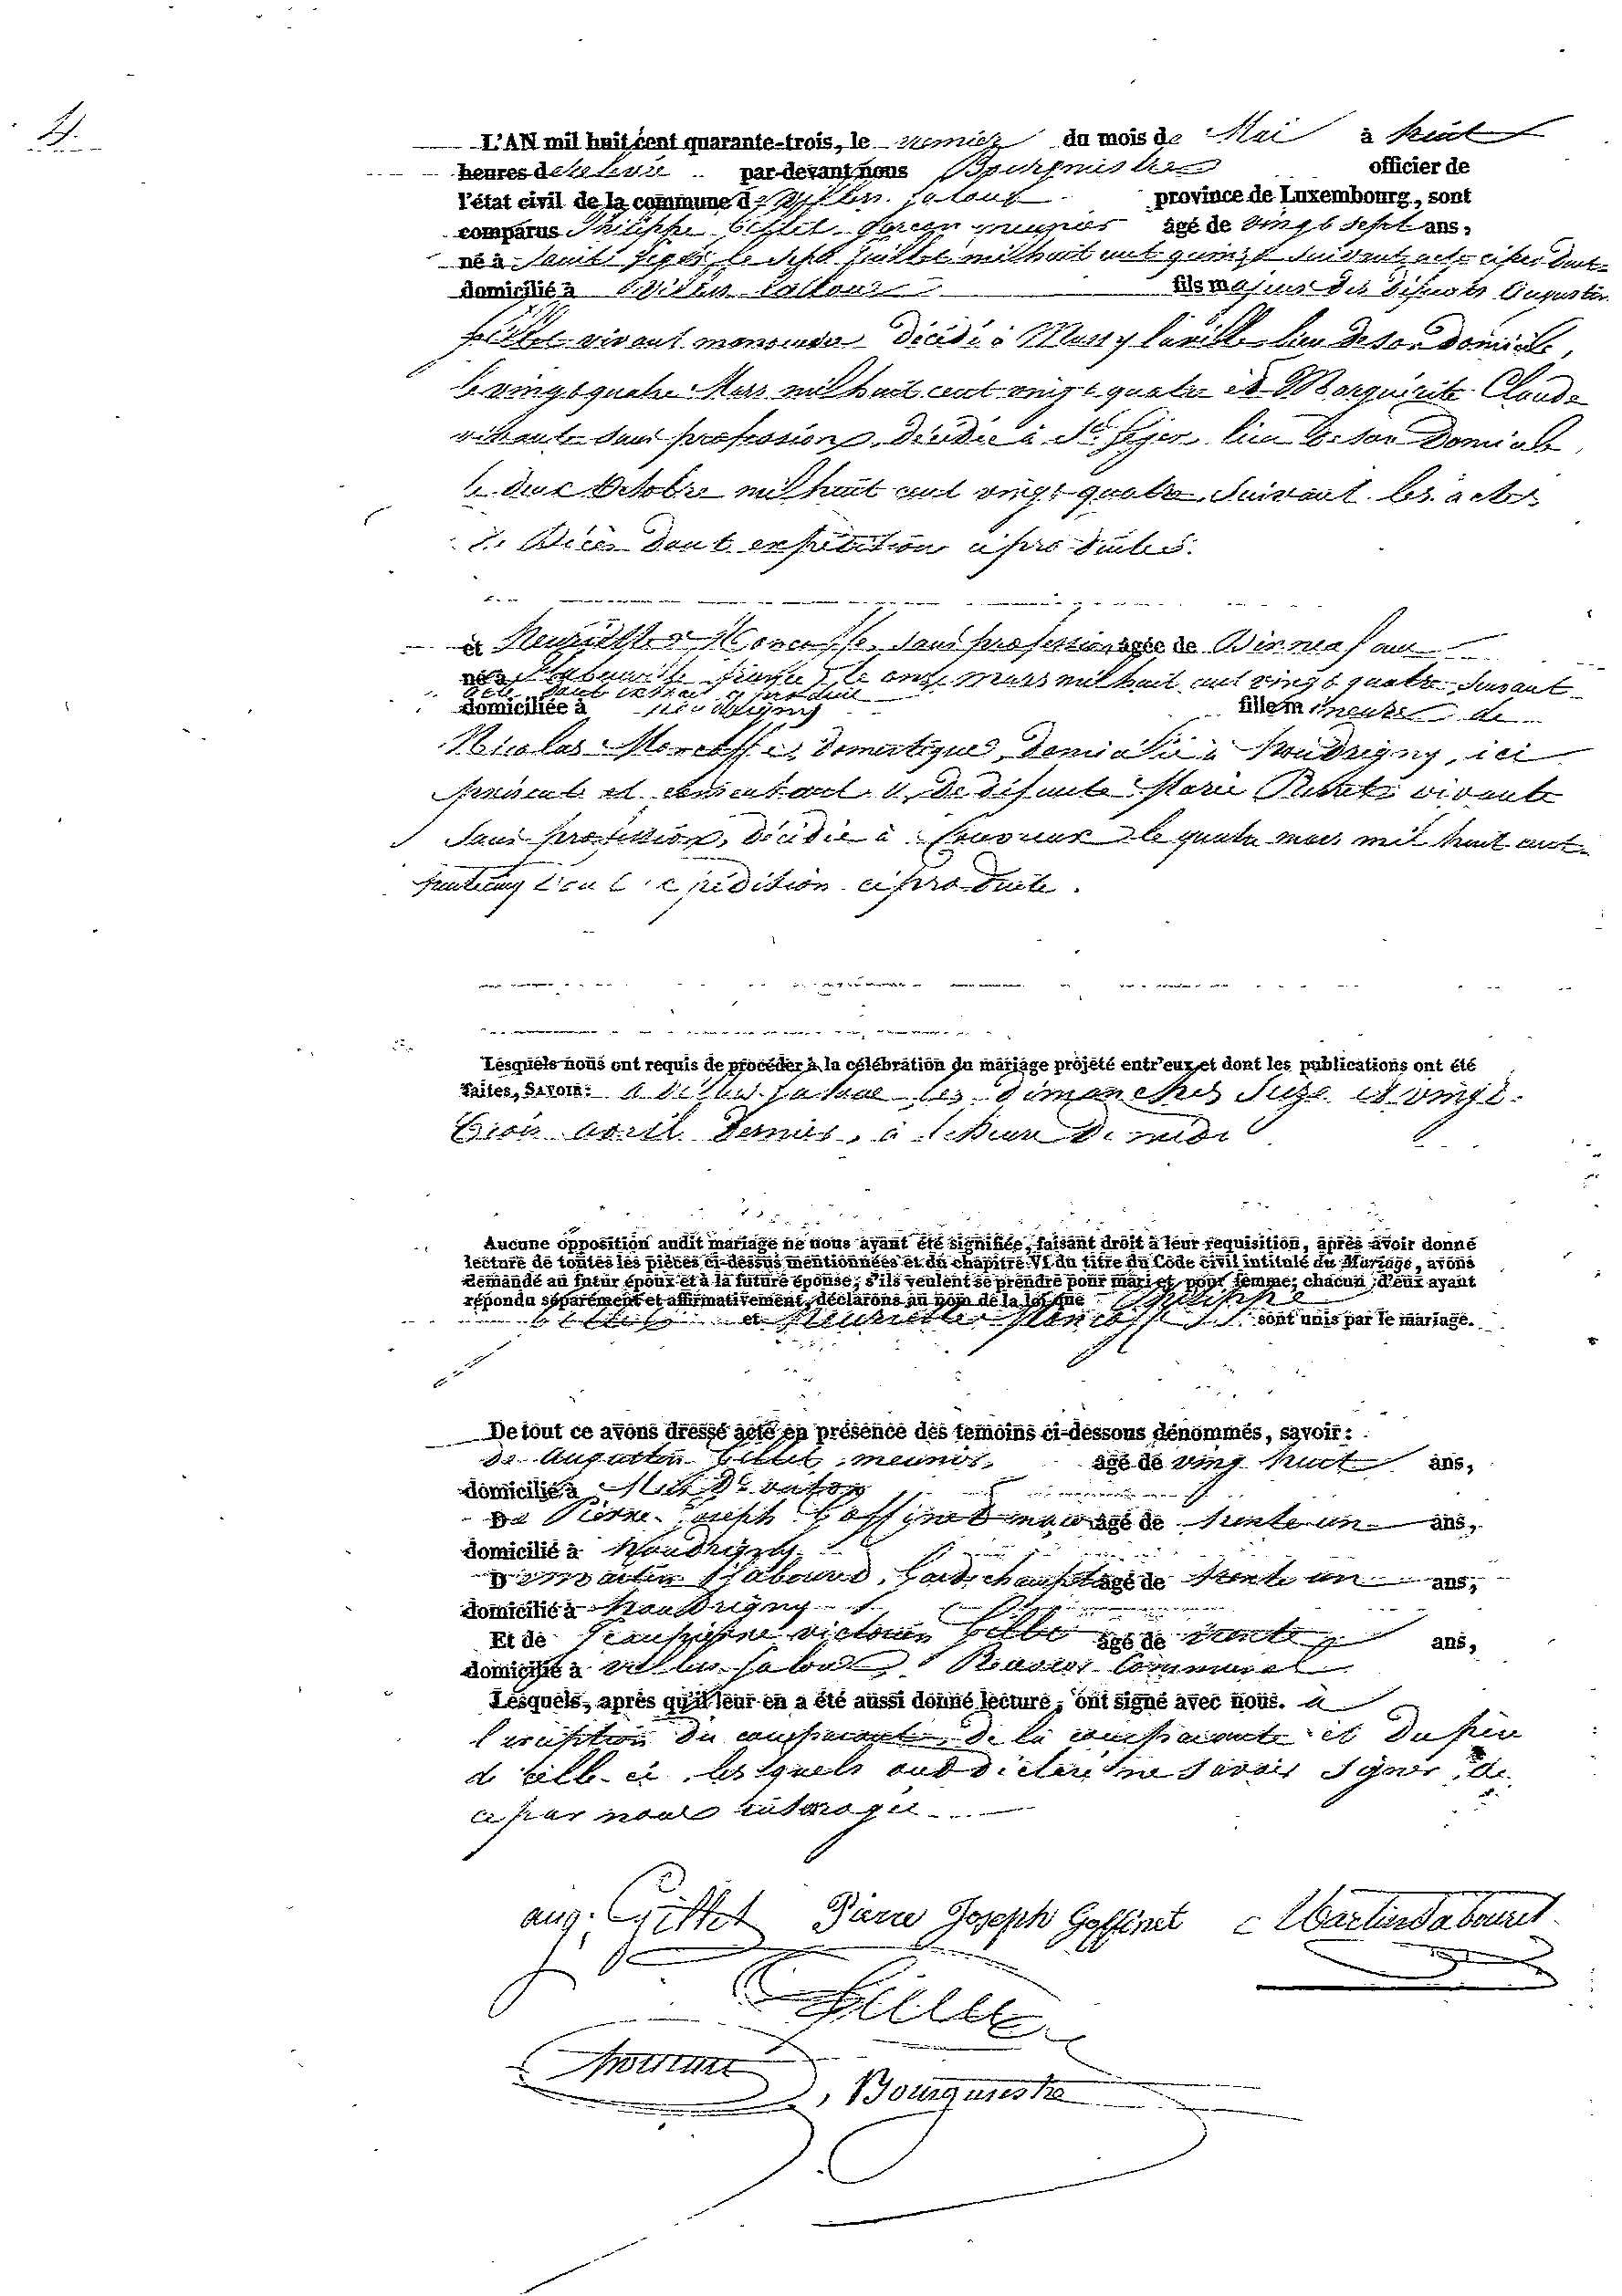 4.
L'AN mil huit cent quarante-trois, le premier du mois de Mai à huit
heures de relevée par-devant nous Bourgmestre officier de
l'état civil de la commune de Villers la loue province de Luxembourg, sont
comparus Philippe Gillet garçon meunier âgé de vingt sept ans,
né à Saint Leger, le sept juillet mil huit cent quinze suivant acte ci produit
domicilié à Villers la loue fils majeur des défunts Augustin
Gillet vivant décédé à Mussy la ville lieu de son domicile,
le vingt quatre Mars mil huit cent vingt quatre et Marguerite Claude
vivante sans profession, décédée à St Leger lieu de son domicile,
le deux Octobre mil huit cent vingt quatre, suivant les actes
de Décès dont expédition ci produites.
et Henriette sans profession âgée de Dix neuf ans
née à le onze Mars mil huit cent vingt quatre suivant
acte dont extrait ci produit
domiciliée à Houdrigny fille mineure de
Nicolas domestique, domicilié à Houdrigny, ici
présent et consentant et de défunte Marie vivante
sans profession, décédée à le quatre mars mil huit cent
trente cinq dont expédition ci produite.
Lesquels nous ont requis de procéder à la célébration du mariage projeté entr'eux et dont les publications ont été
faites, SAVOIR: à Villers la loue les dimanches Seize et vingt
trois avril dernier, à l'heure de midi
Aucune opposition audit mariage ne nous ayant été signifiée, faisant droit à leur requisition, après avoir donné
lecture de toutes les pièces ci-dessus mentionnées et du chapitre VI du titre du Code civil intitulé du Mariage, avons
demandé au futur époux et à la future épouse, s'ils veulent se prendre pour mari et pour femme; chacun d'eux ayant
répondu séparément et affirmativement, déclarons au nom de la loi que Philippe
Gillet et Henriette sont unis par le mariage.
De tout ce avons dressé acte en présence des temoins ci-dessous dénommés, savoir:
de Augustin Gillet, meunier, âgé de vingt huit ans,
domicilié à
De Pierre Joseph Goffinet âgé de trente un ans,
domicilié à Houdrigny
De Martin Nabouret, Garde champêtre âgé de trente un ans,
domicilié à Houdrigny
Et de victoire Gillet âgé de trente ans,
domicilié à Villers la loue Receveur Communal
Lesquels, après qu'il leur en a été aussi donné lecture, ont signé avec nous. à
l'exception du comparant, de la comparante et du père
de celle-ci, lesquels ont déclaré ne savoir signer, de
ce par nous interrogé
aug. Gillet Pierre Joseph Goffinet Martin Nabouret
Gillet
Bourgmestre